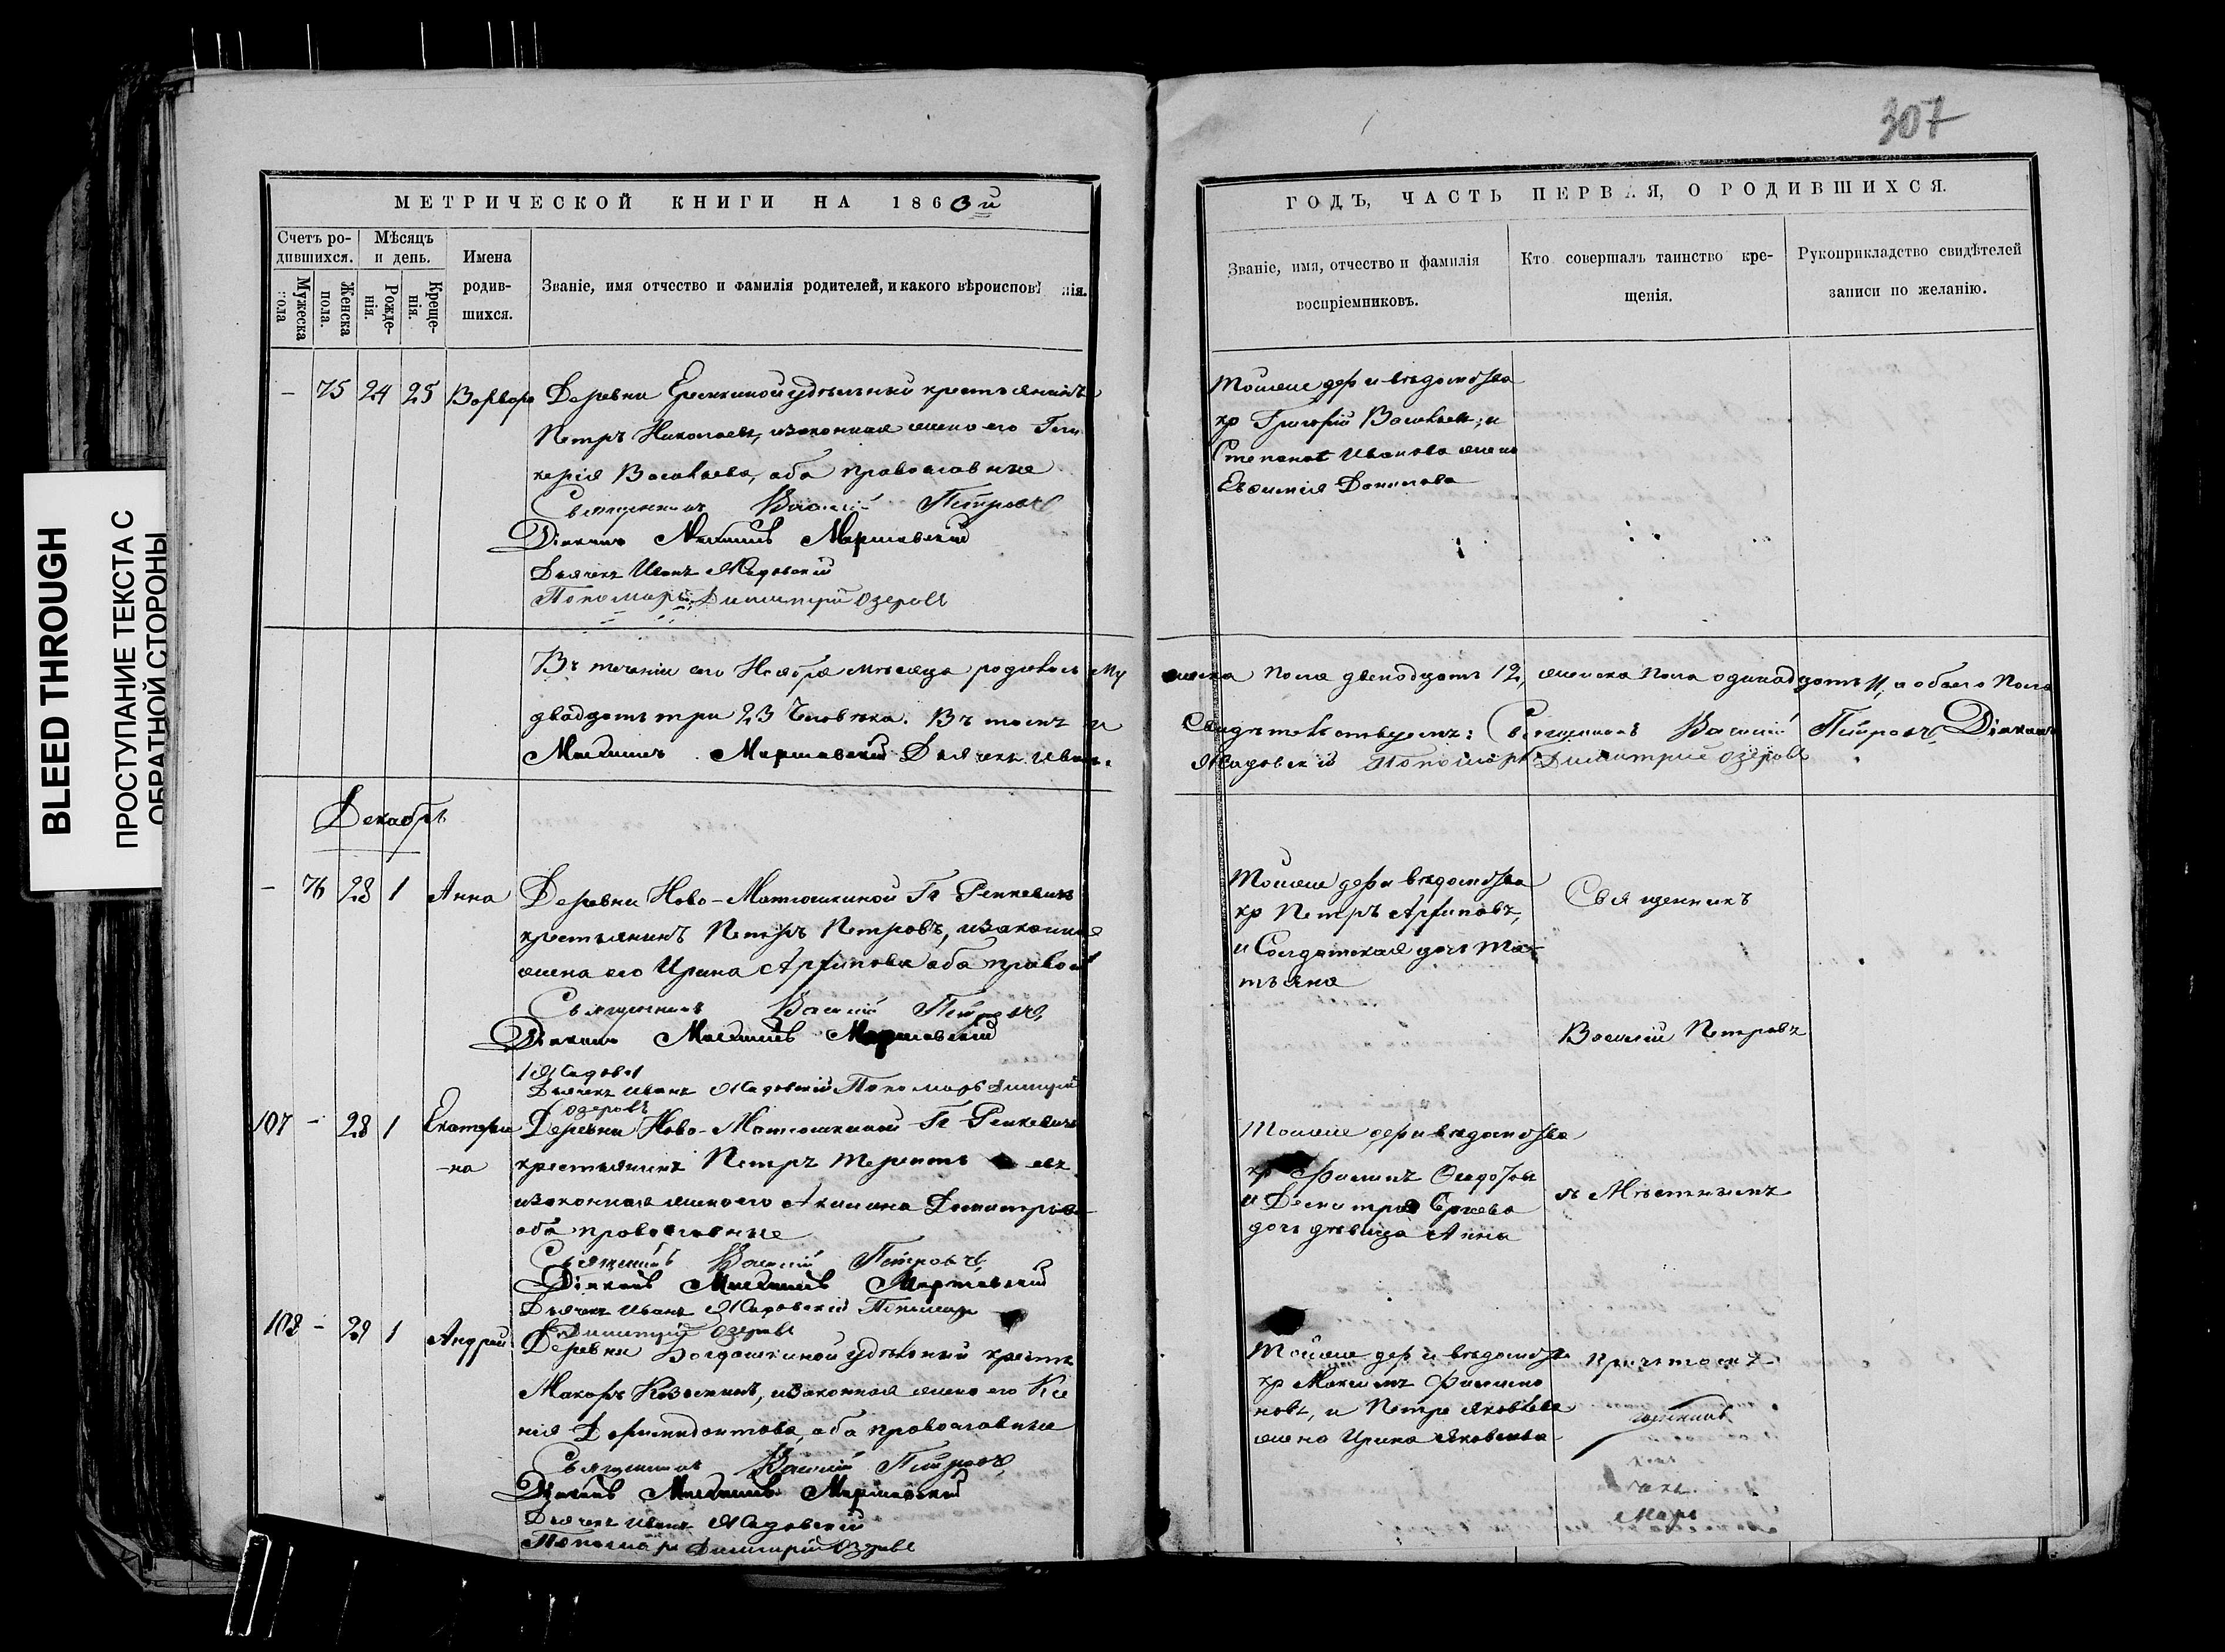 BLEED THROUGH
ПРОСТУПАНИЕ ТЕКСТА С
ОБРАТНОЙ СТОРОНЫ
307
МЕТРИЧЕСКОЙ КНИГИ НА 1860й
Счетъ родившихся.
Мужеска пола
Женска пола.
Мѣсяцъ и день.
Рожденія.
Крещенія.
Имена родившихся.
Званіе, имя отчество и фамилія родителей, и какого вѣроисповѣ нія.
ГОДЪ, ЧАСТЬ ПЕРВАЯ, О РОДИВШИХСЯ.
Званіе, имя, отчество и фамилія
воспріемниковъ.
Кто совершалъ таинство кре-
щенія.
Рукоприкладство свидѣтелей
записи по желанію.
— 75 24 25 Варвара Деревни удѣльный крестьянинъ
Петръ Николаевъ, изаконная жена его Гли
керія Васильева, оба православные
Священникъ Василій Петровъ
Діаконъ Маршавскій
Дьячекъ Иванъ Жадовскій
Пономарь Димитрій Озеровъ
Тойже дер и вѣдомства
кр Григорій Васильев; и
Степана Иванова жена
Евфимія Данилова
Въ теченіи сего Ноября мѣсяца родилось му
жеска пола двенадцать 12, женска пола одинадцать 11, а обоего пола
двадцать три 23 Человѣка. Въ томъ и
Свидѣтельствуемъ: Священникъ Василій Петровъ Діаконъ
Маршавскій Дьячекъ Иванъ
Жадовскій Пономарь Димитрій Озеровъ
Декабрь
— 76 28 1 Анна Деревни Ново-Матюшкиной Гг Ренкевичъ
крестьянинъ Петръ Петровъ, изаконная
жена его Ирина Архипова оба правос
Священникъ Василій Петровъ
Діаконъ Маршавскій
Жадов
Дьячекъ Иванъ Жадовскій Пономарь Димитрій
Озеровъ
Тойже дер и вѣдомства
кр Петръ Архиповъ,
и Солдатская дочь Та
тьяна
Священникъ
Василій Петровъ
107 — 28 1 Екатери
-на
Деревни Ново-Матюшкиной Гг Ренкевичъ
крестьянинъ Петръ Теренть евъ
изаконная жена его Акилина Димитріева
оба православные
Священникъ Василій Петровъ
Діаконъ Маршавскій
Дьячекъ Иванъ Жадовскій Пономарь
Димитрій Озеровъ
Тойже дер и вѣдомства
кр Филипъ Федотов
и Димитрія Сергеева
дочь дѣвица Анна
съ Мѣстнымъ
108 — 29 1 Андрей
Деревни Богдашкиной удѣльный крестья
Макаръ Козьминъ, изаконная жена его Ксе
нія Дормидонтова, оба православные
Священникъ Василій Петровъ
Діаконъ Маршавскій
Дьячекъ Иванъ Жадовскій
Пономарь Димитрій Озеровъ
Тойже дер и вѣдомства
кр Максимъ Филимо
новъ, и Петра Яковлева
жена Ирина Яковлева
Причтомъ